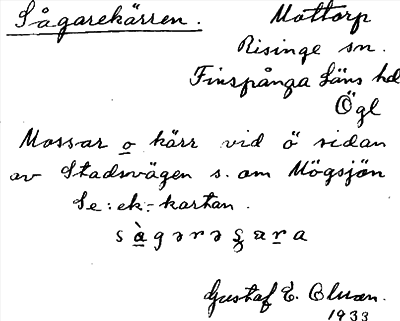 Sågarekärren.
Mottorp
Risinge sn.
Finspånga läns hd
Ögl
Mossar o kärr vid ö sidan
av Stadsvägen s. om Mögsjön
Se: ek.-kartan.
Gustaf E.
1933